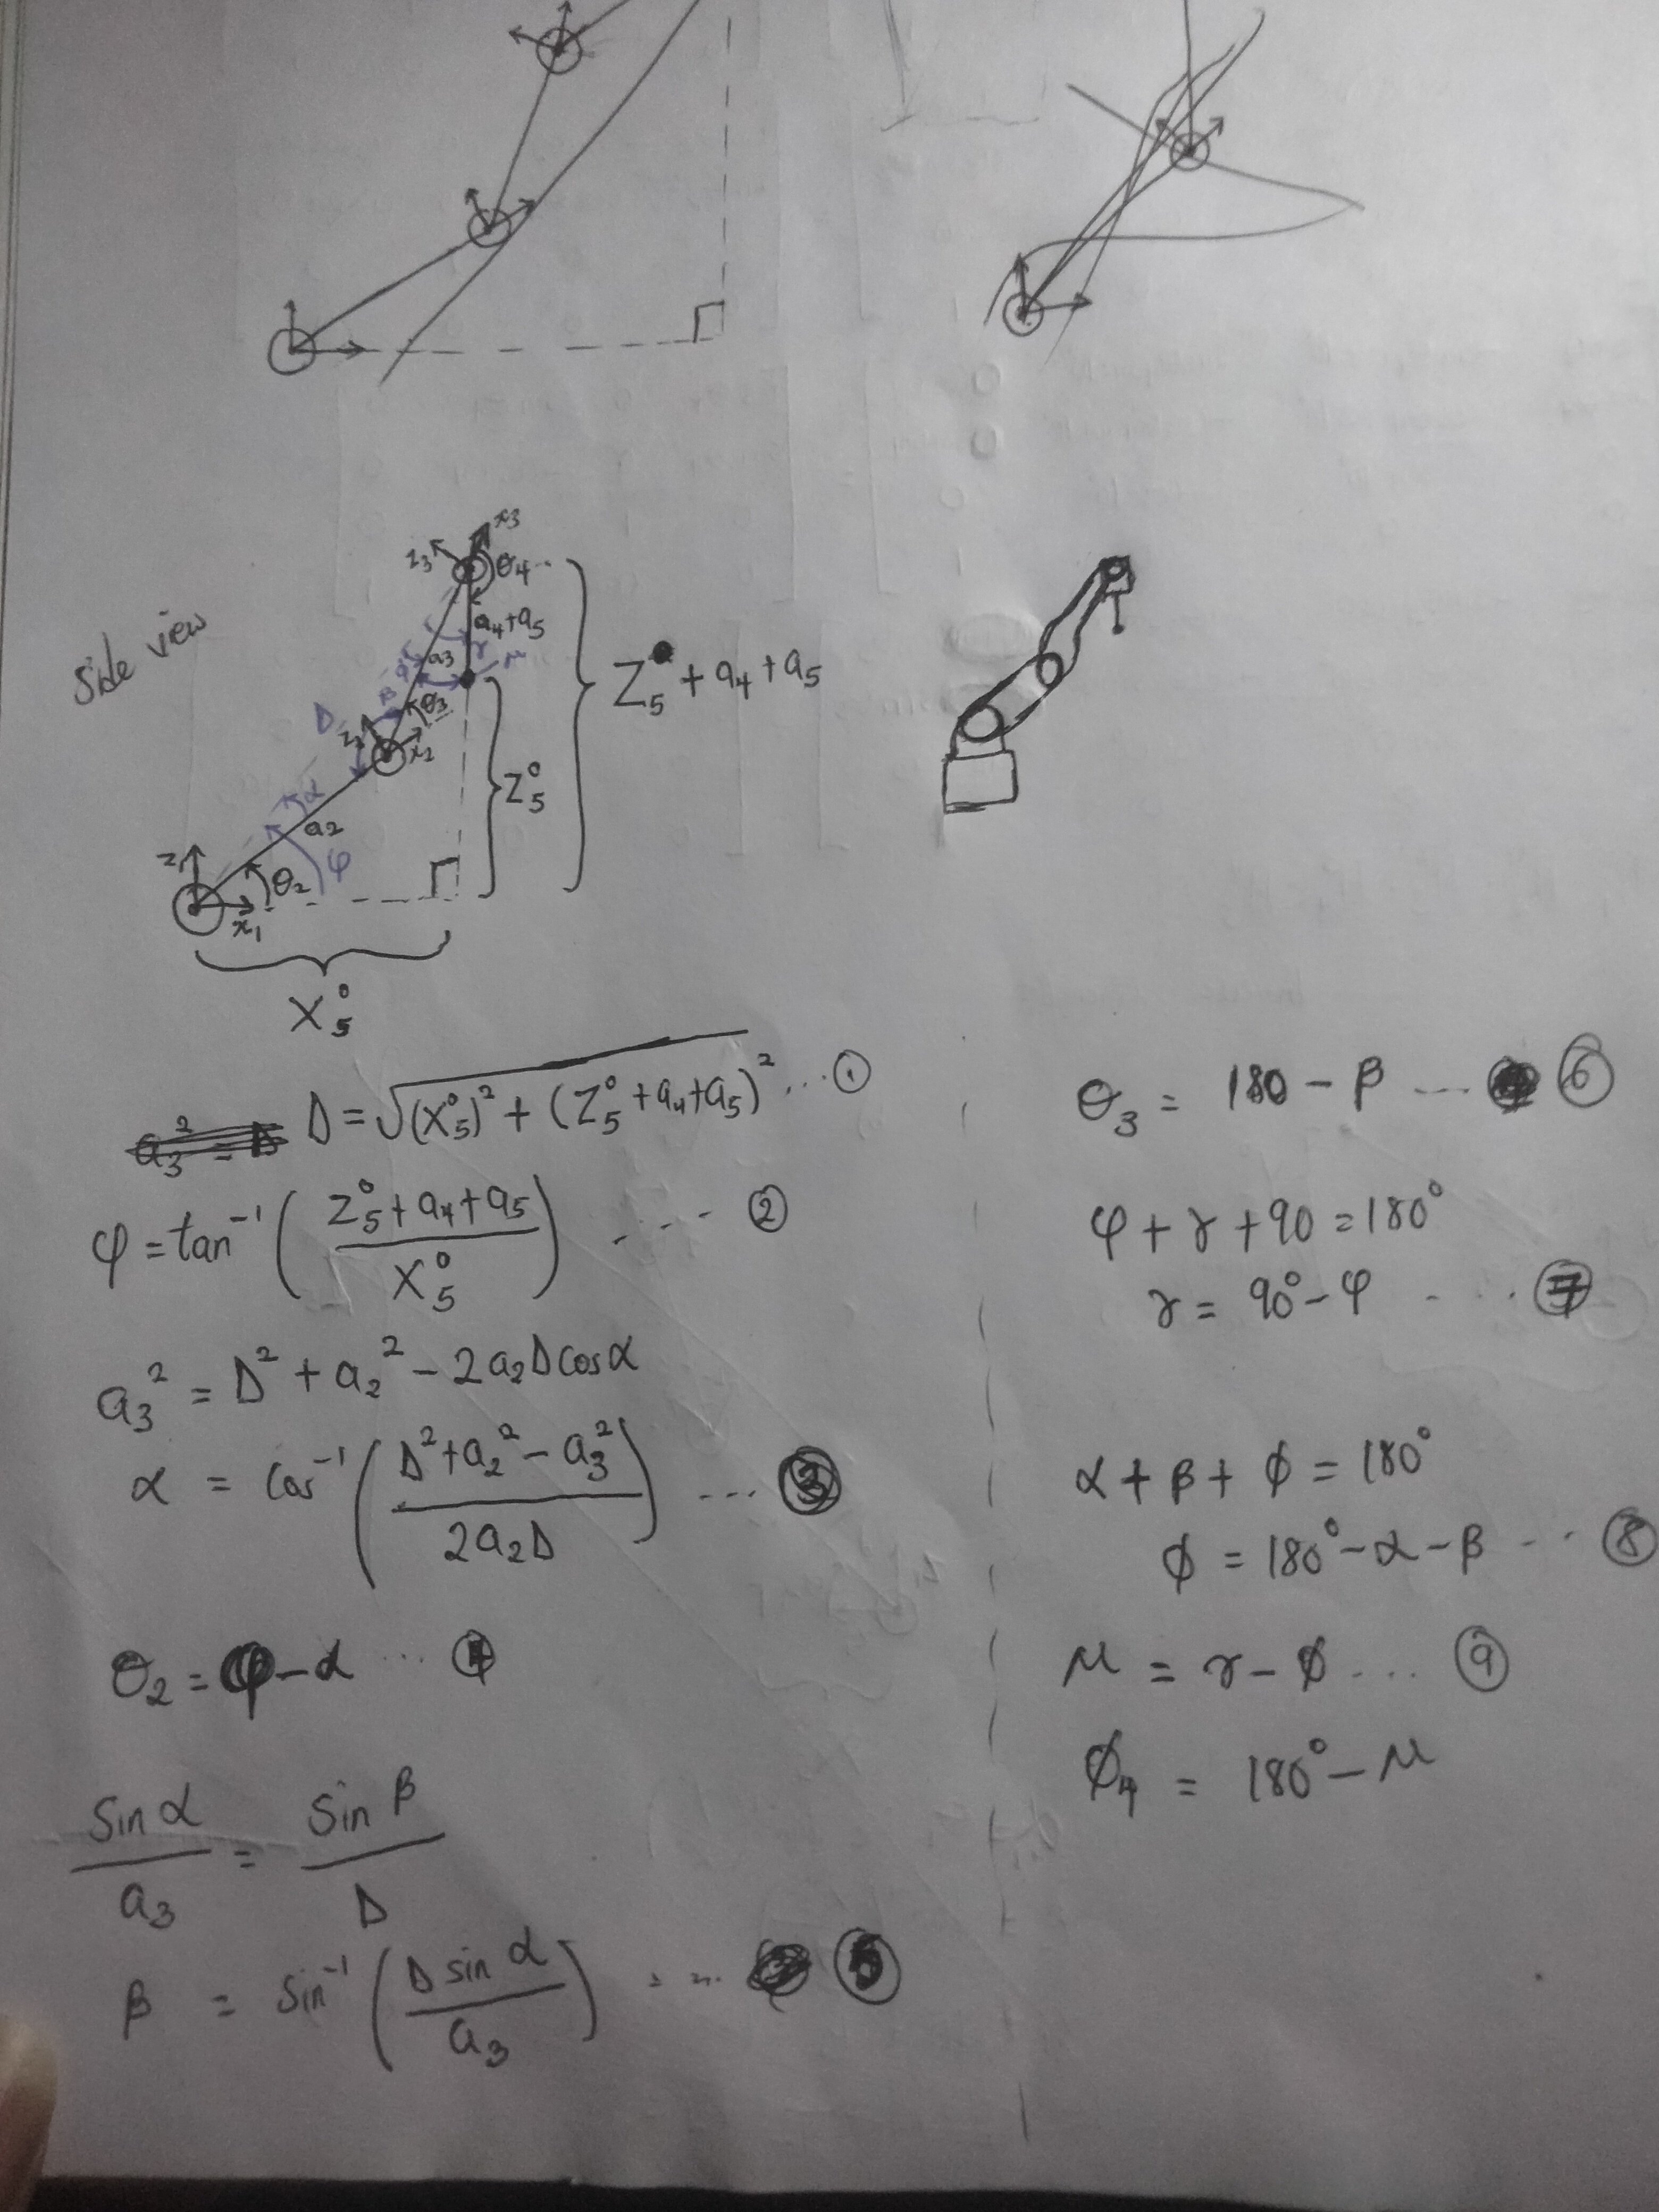 side view
z₃
x₃
θ₄
a₄+a₅
r
a₃
μ
Z₅ + a₄ + a₅
β
θ₃
D
x₂
Z₅⁰
α
a₂
φ
z₁
θ₂
x₁
X₅⁰
D = √((X₅⁰)² + (Z₅⁰ + a₄ + a₅)²) ... ①
φ = tan⁻¹ ( (Z₅⁰ + a₄ + a₅) / X₅⁰ ) ... ②
a₃² = D² + a₂² - 2a₂Dcosα
α = Cos⁻¹ ( (D² + a₂² - a₃²) / 2a₂D ) ... ③
θ₂ = φ - α ... ④
Sin α / a₃ = Sin β / D
β = Sin⁻¹ ( D sin α / a₃ ) ... ⑤
θ₃ = 180 - β ... ⑥
φ + γ + 90 = 180°
γ = 90° - φ ... ⑦
α + β + ϕ = 180°
ϕ = 180° - α - β ... ⑧
μ = γ - ϕ ... ⑨
ϕ₄ = 180° - μ